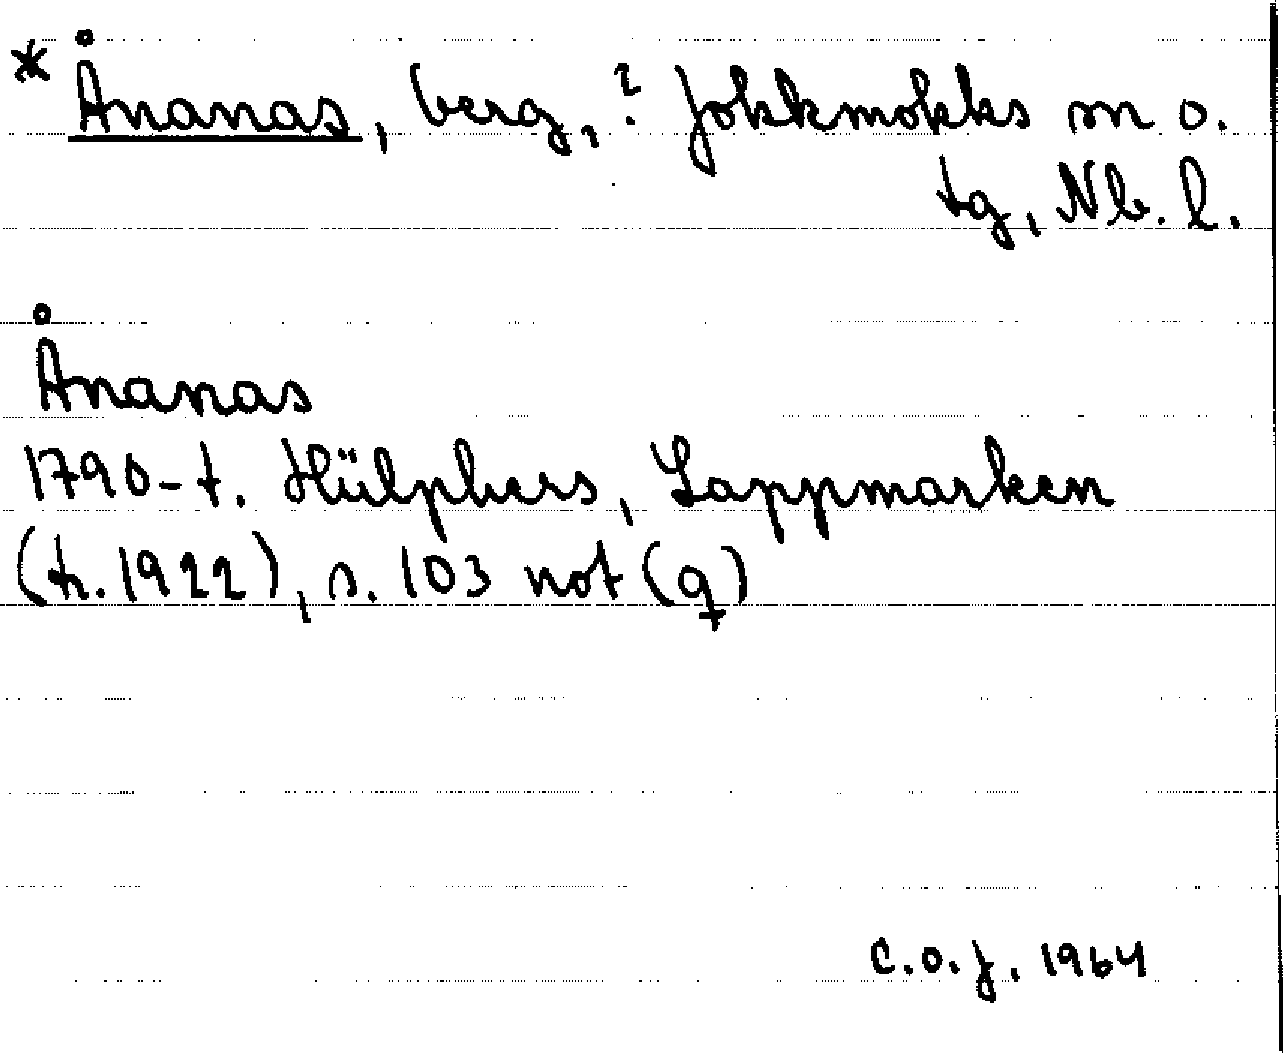 * Ånanas, berg, ? Jokkmokks sn o.
tg, Nb. l.
Ånanas
1790-t. Hülphers, Lappmarken
(tr. 1922), s. 103 not (q)
C.O.J. 1964